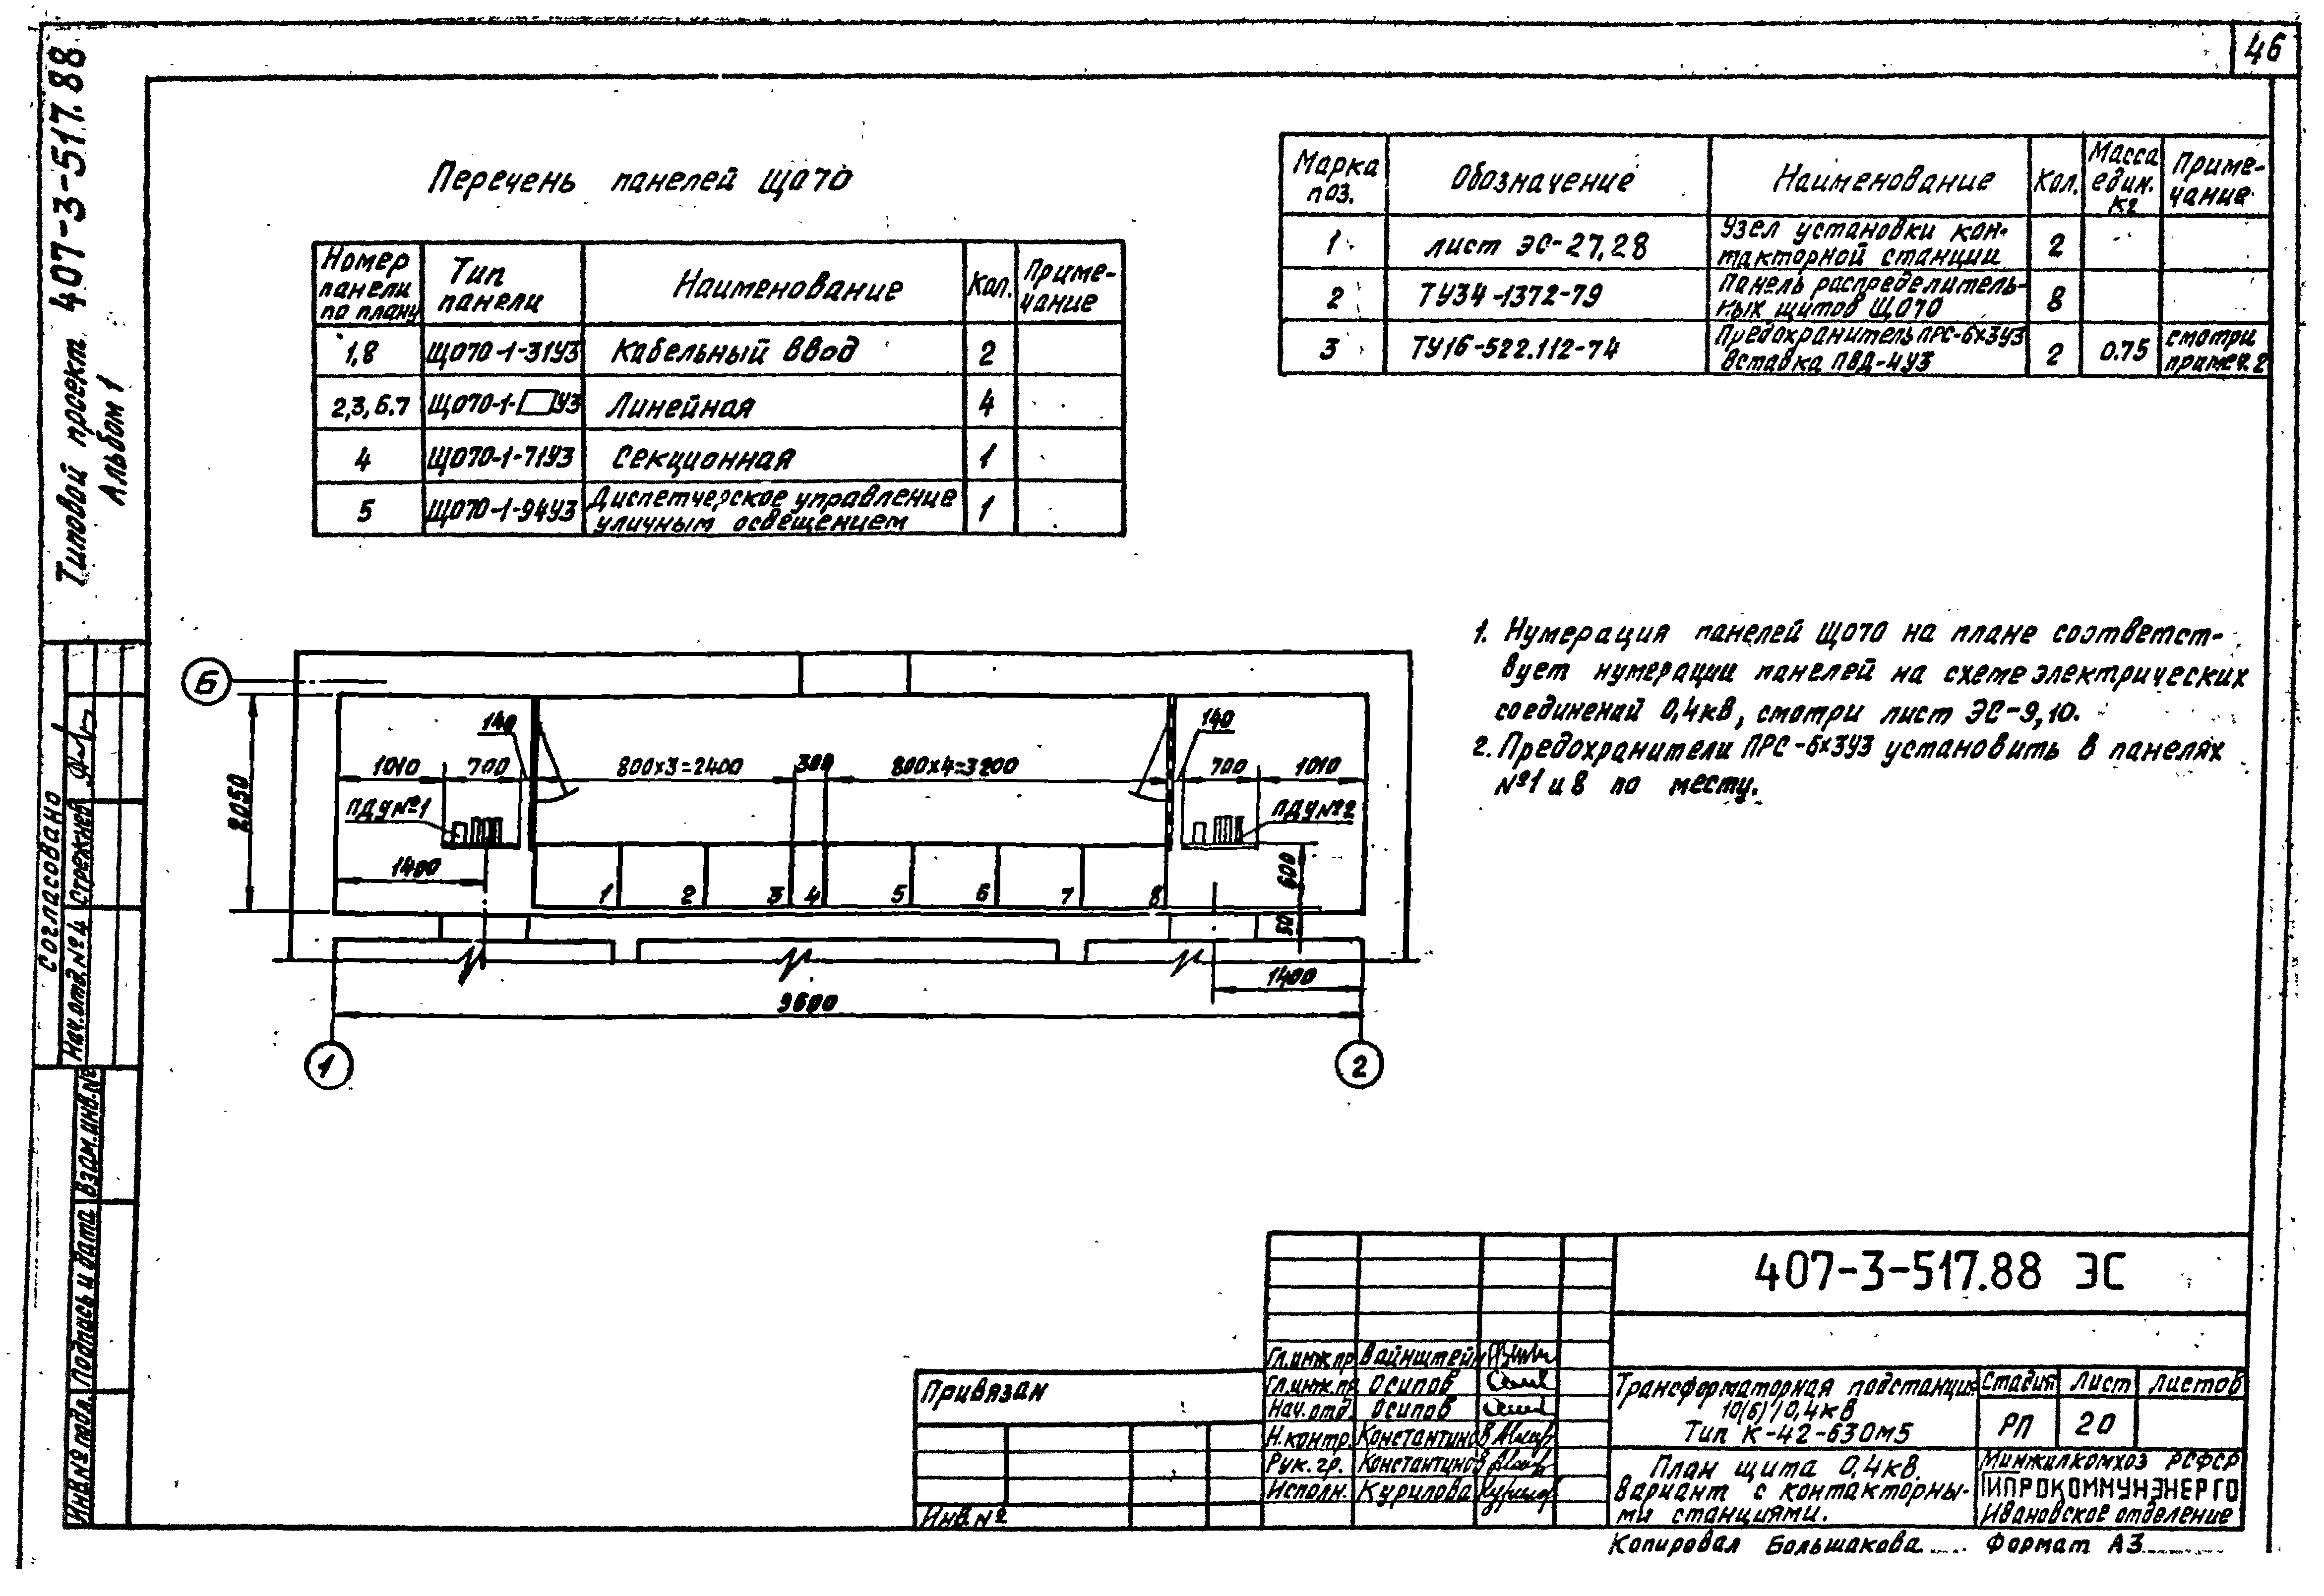 46
Типовой проект 407-3-517.88
Альбом 1
Перечень панелей ЩО70
Номер панели по плану
Тип панели
Наименование
Кол.
Приме-
чание
1,8 ЩО70-1-31У3 Кабельный ввод 2
2,3,6.7 ЩО70-1-□У3 Линейная 4
4 ЩО70-1-71У3 Секционная 1
5 ЩО70-1-94У3 Диспетчерское управление
уличным освещением 1
Марка поз.
Обозначение
Наименование
Кол.
Масса един. кг
Приме-
чание
1 лист ЭС-27,28 Узел установки кон-
такторной станции 2
2 ТУ34-1372-79 Панель распределитель-
ных щитов ЩО70 8
3 ТУ16-522.112-74 Предохранитель ПРС-6х3У3
вставка ПВД-4У3 2 0.75 смотри
примеч. 2
1. Нумерация панелей ЩО70 на плане соответст-
вует нумерации панелей на схеме электрических
соединений 0,4кв, смотри лист ЭС-9,10.
2. Предохранители ПРС-6х3У3 установить в панелях
№1 и 8 по месту.
Б
140 140
1010 700 800х3=2400 300 800х4=3200 700 1010
2050
ПДУ№1 ПДУ№2
1400
600
1 2 3 4 5 6 7 8
50
1400
9600
1 2
Согласовано
Нач.отд.№4 Стрежнев
Взам.инв.№
Подпись и дата
Инв.№ подл.
407-3-517.88 ЭС
Гл.инж.пр Вайнштейн
Гл.инж.пр Осипов
Нач.отд. Осипов
Н.контр. Константинов
Рук.гр. Константинов
Исполн. Курилова
Привязан
Инв.№
Трансформаторная подстанция
10(6)/0,4кв
Тип К-42-630М5
Стадия Лист Листов
РП 20
План щита 0,4кв.
Вариант с контакторны-
ми станциями.
Минжилкомхоз РСФСР
ГИПРОКОММУНЭНЕРГО
Ивановское отделение
Копировал Большакова Формат А3